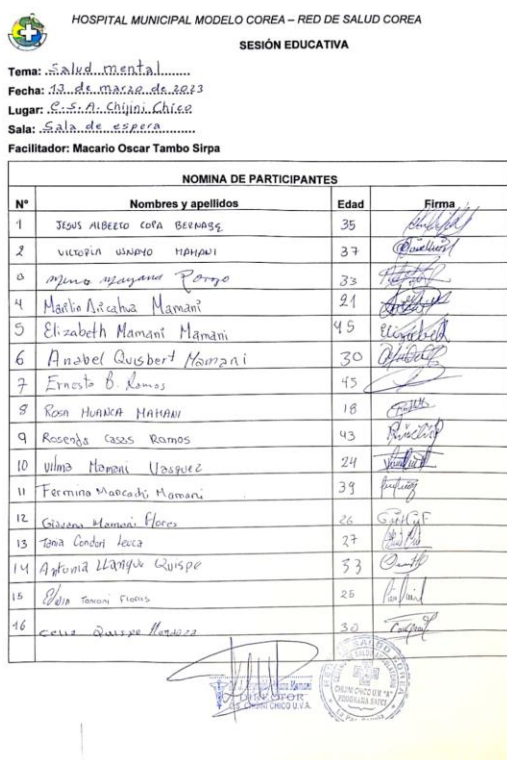 HOSPITAL MUNICIPAL MODELO COREA – RED DE SALUD COREA
SESIÓN EDUCATIVA
Tema: Salud mental
Fecha: 13 de marzo de 2023
Lugar: C.S.A. Chijini Chico
Sala: Sala de espera
Facilitador: Macario Oscar Tambo Sirpa
NOMINA DE PARTICIPANTES
N° Nombres y apellidos Edad Firma
1 JESUS ALBERTO COPA BERNABE 35
2 VICTORIA USNAYO MAMANI 37
3 33
4 Martin Aricahua Mamani 21
5 Elizabeth Mamani Mamani 45 Elizabeth
6 Anabel Quisbert Mamani 30
7 Ernesto B. Ramos 45
8 ROSA HUANCA MAMANI 18
9 Rosendo Casas Ramos 43
10 Vilma Mamani Vasquez 24
11 Fermina Mamani 39
12 Giovana Mamani Flores 26
13 Tania Condori 27
14 Antonia LLanque Quispe 53
15 Flores 25
16 Celia Quispe Mendoza 30
DIRECTOR
C.S. CHIJINI CHICO U.V.A.
RED DE SALUD COREA
CHIJINI CHICO U.V. "A"